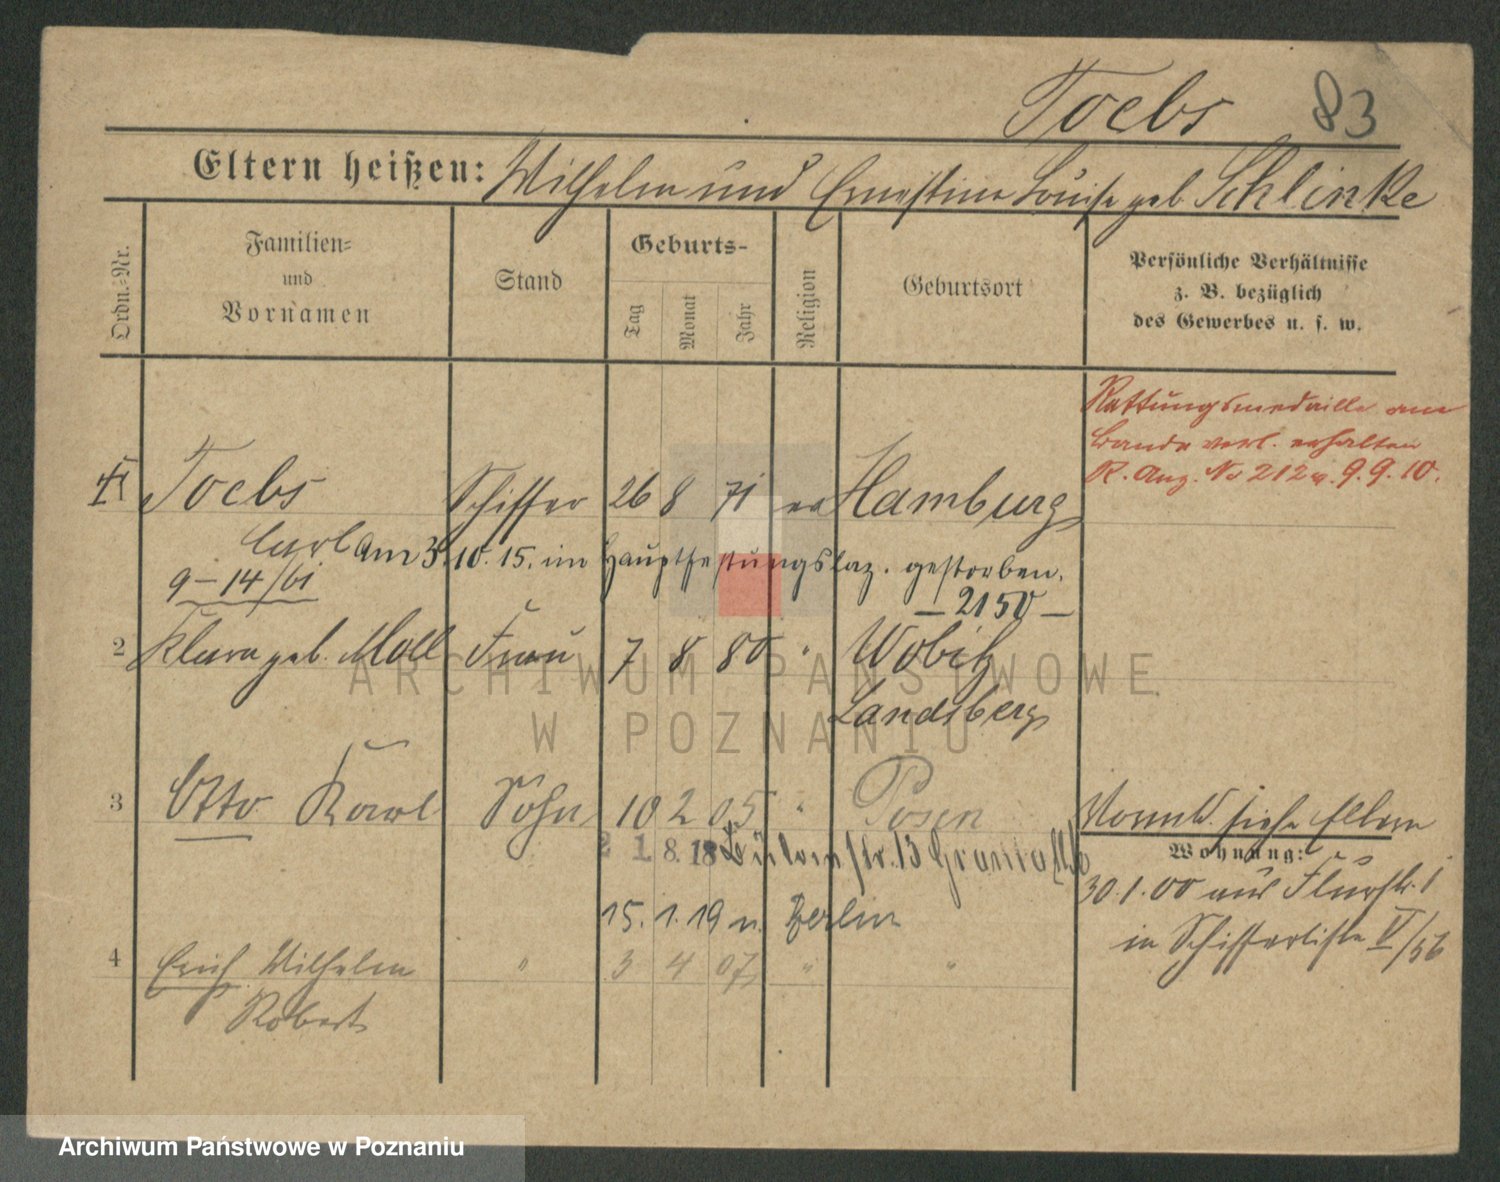 Toebs 83
Eltern heißen: Wilhelm und Ernestine Louise geb. Schlinke
Ordn.-Nr.
Familien-
und
Vornamen
Stand
Geburts-
Tag
Monat
Jahr
Religion
Geburtsort
Persönliche Verhältnisse
z. B. bezüglich
des Gewerbes u. s. w.
Rettungsmedaille am
Bande verl. erhalten
R. Anz. No 212 v. 9.9.10.
Toebs Schiffer 26 8 71 ev Hamburg
Carl am 3.10.15. im Hauptfestungslaz. gestorben.
9-14/61
- 2150 -
2 Klara geb. Moll Frau 7 8 80 " Wobitz
Landsberg
3 Otto Karl Sohn 10 2 05 " Posen
21.8.18 str. 13
15.1.19 n. Berlin
siehe Eltern
Wohnung:
30.1.00 aus Flurstr. 1
in Schifferliste V/56
4 Erich Wilhelm " 3 4 07 " "
Robert
ARCHIWUM PAŃSTWOWE
W POZNANIU
Archiwum Państwowe w Poznaniu